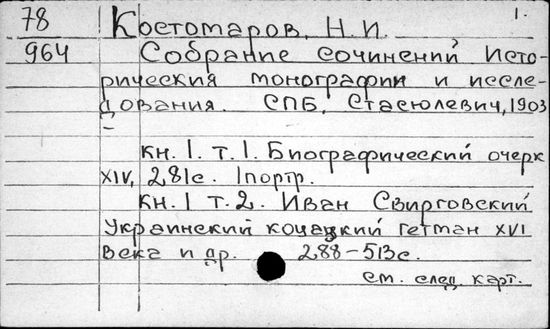 78 Костомаров, Н.И. 1.
964 Собрание сочинений Исто-
рические монографии и иссле-
дования. СПБ, Стасюлевич, 1903
–
кн. 1. т. 1. Биографический очерк
XIV, 281с. 1портр.
кн. 1 т. 2. Иван Свирговский
Украинский козацкий гетман XVI
века и др. 288–513с.
см. след. карт.